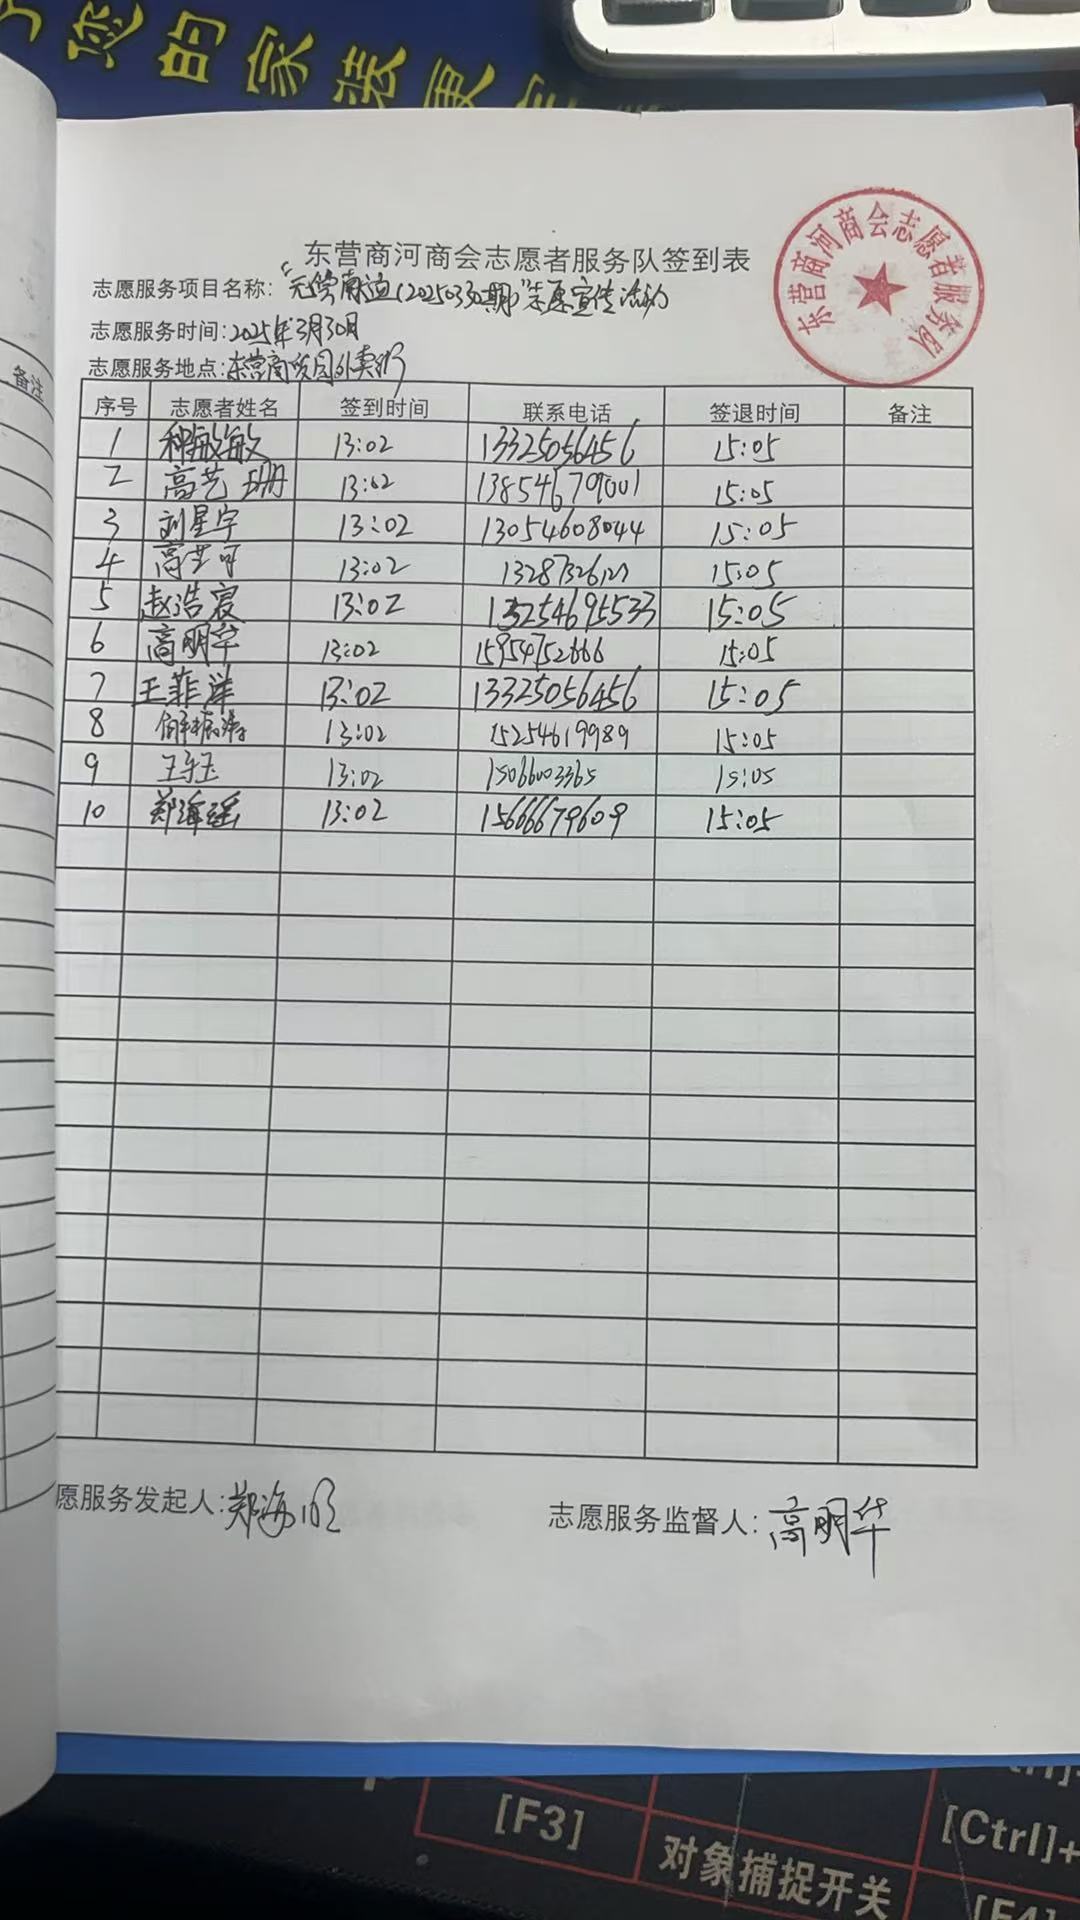 您的家装
备注
东营商河商会志愿者服务队签到表
东营商河商会志愿者服务队
志愿服务项目名称:"无偿献血(20250330期)"志愿宣传活动
志愿服务时间:2025年3月30日
志愿服务地点:东营商
序号 志愿者姓名 签到时间 联系电话 签退时间 备注
1 种敏敏 13:02 13325056456 15:05
2 高艺珊 13:02 13854679001 15:05
3 刘星宇 13:02 13054608044 15:05
4 高艺可 13:02 15:05
5 赵浩宸 13:02 13254695533 15:05
6 高明华 13:02 15954752666 15:05
7 王菲洋 13:02 13325056456 15:05
8 13:02 15254619989 15:05
9 13:02 15066003365 15:05
10 郑海瑶 13:02 15666679609 15:05
愿服务发起人:郑海明
志愿服务监督人:高明华
[F3]
对象捕捉开关
[Ctrl]+
[F4]